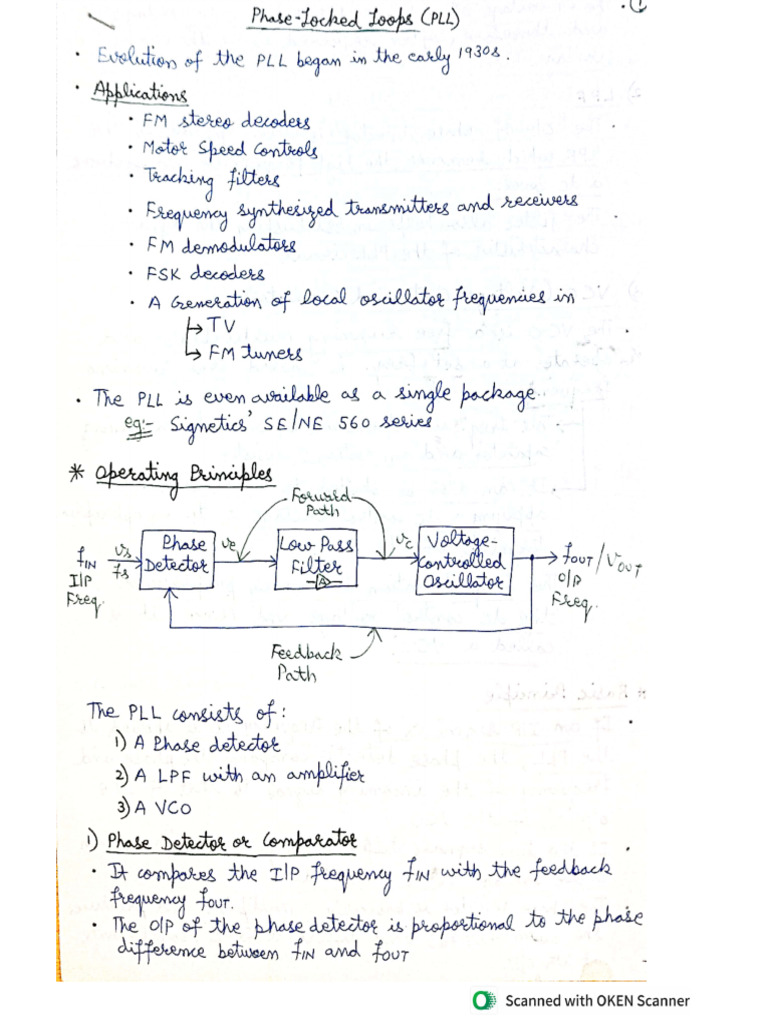 Phase-Locked Loops (PLL)
• Evolution of the PLL began in the early 1930s.
• Applications
• FM stereo decoders
• Motor Speed Controls
• Tracking filters
• Frequency synthesized transmitters and receivers
• FM demodulators
• FSK decoders
• A Generation of local oscillator frequencies in
↳ TV
↳ FM tuners
• The PLL is even available as a single package.
eg:- Signetics' SE/NE 560 series
* Operating Principles
Forward Path
fIN I/P Freq.
vs fs
Phase Detector
ve
Low Pass Filter
A
vc
Voltage-Controlled Oscillator
fOUT/VOUT O/P Freq.
Feedback Path
The PLL consists of:
1) A Phase detector
2) A LPF with an amplifier
3) A VCO
1) Phase Detector or Comparator
• It compares the I/P frequency fIN with the feedback
frequency fOUT.
• The O/P of the phase detector is proportional to the phase
difference between fIN and fOUT
Scanned with OKEN Scanner